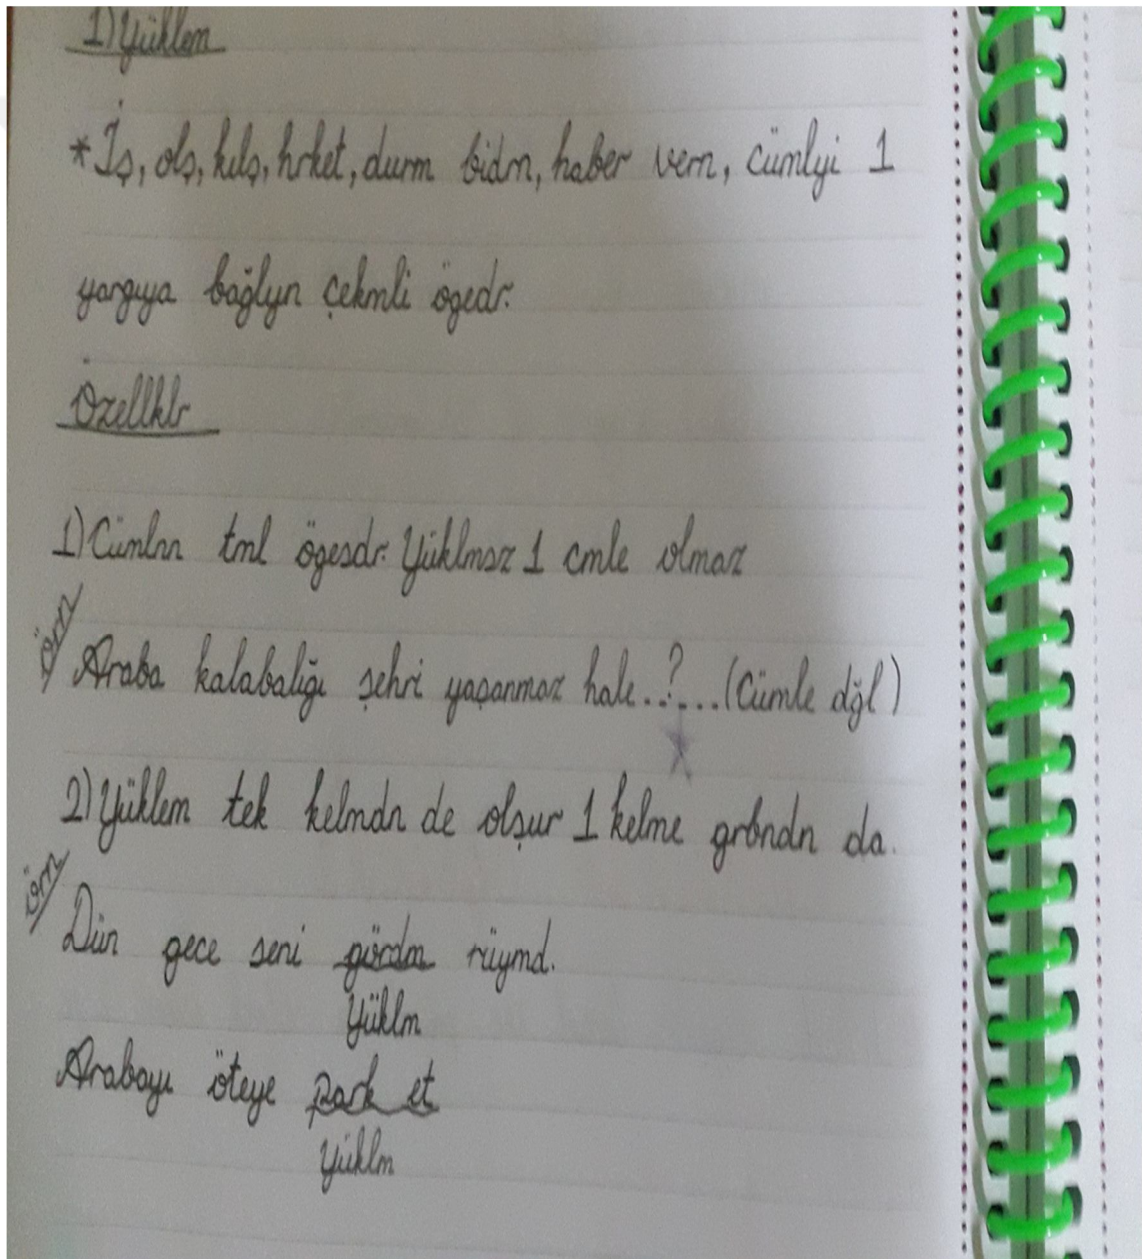 1) Yüklem
* İş, olş, kılş, hrket, durm bidrn, haber vern, cümlyi 1
yargıya bağlyn çekmli ögedr.
Özellklr
1) Cümlnn tml ögesdr. Yüklmsz 1 cmle olmaz
örn/
Araba kalabalığı şehri yaşanmaz hale..?...(Cümle dğl)
2) Yüklem tek kelmdn de olşur 1 kelme grbndn da.
örn/
Dün gece seni gördm rüymd.
Yüklm
Arabayı öteye park et
Yüklm